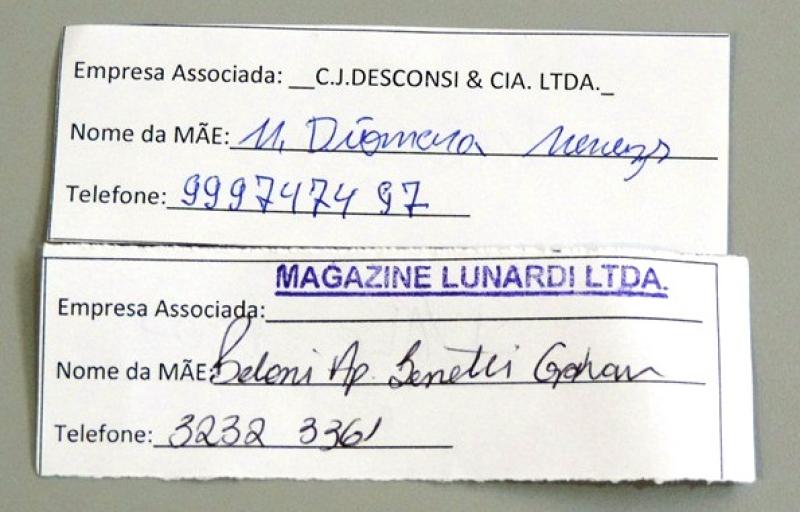 Empresa Associada: __C.J.DESCONSI & CIA. LTDA._
Nome da MÃE: M. Diomara Menezes
Telefone: 999747497
MAGAZINE LUNARDI LTDA.
Empresa Associada:
Nome da MÃE: Beloni Ap. Benetti
Telefone: 3232 3361